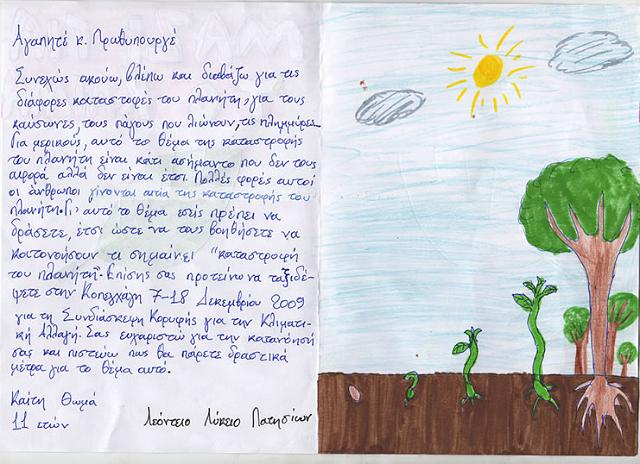 Αγαπητέ κ. Πρωθυπουργέ
Συνεχώς ακούω, βλέπω και διαβάζω για τις
διάφορες καταστοφές του πλανήτη, για τους
καύσωνες, τους πάγους που λιώνουν, τις πλημμύρες.
Για μερικούς, αυτό το θέμα της καταστροφής
του πλανήτη είναι κάτι ασήμαντο που δεν τους
αφορά αλλά δεν είναι έτσι. Πολλές φορές αυτοί
οι άνθρωποι γίνονται αιτία της καταστροφής του
πλανήτη. Γι' αυτό το θέμα εσείς πρέπει να
δράσετε, έτσι ώστε να τους βοηθήσετε να
κατανοήσουν τι σημαίνει "καταστροφή
του πλανήτη". Επίσης σας προτείνω να ταξιδέ-
ψετε στην Κοπεγχάγη 7-18 Δεκεμβρίου 2009
για τη Συνδιάσκεψη Κορυφής για την Κλιματι-
κή Αλλαγή. Σας ευχαριστώ για την κατανόησή
σας και πιστεύω πως θα πάρετε δραστικά
μέτρα για το θέμα αυτό.
Καίτη Θωμά
11 ετών
Λεόντειο Λύκειο Πατησίων